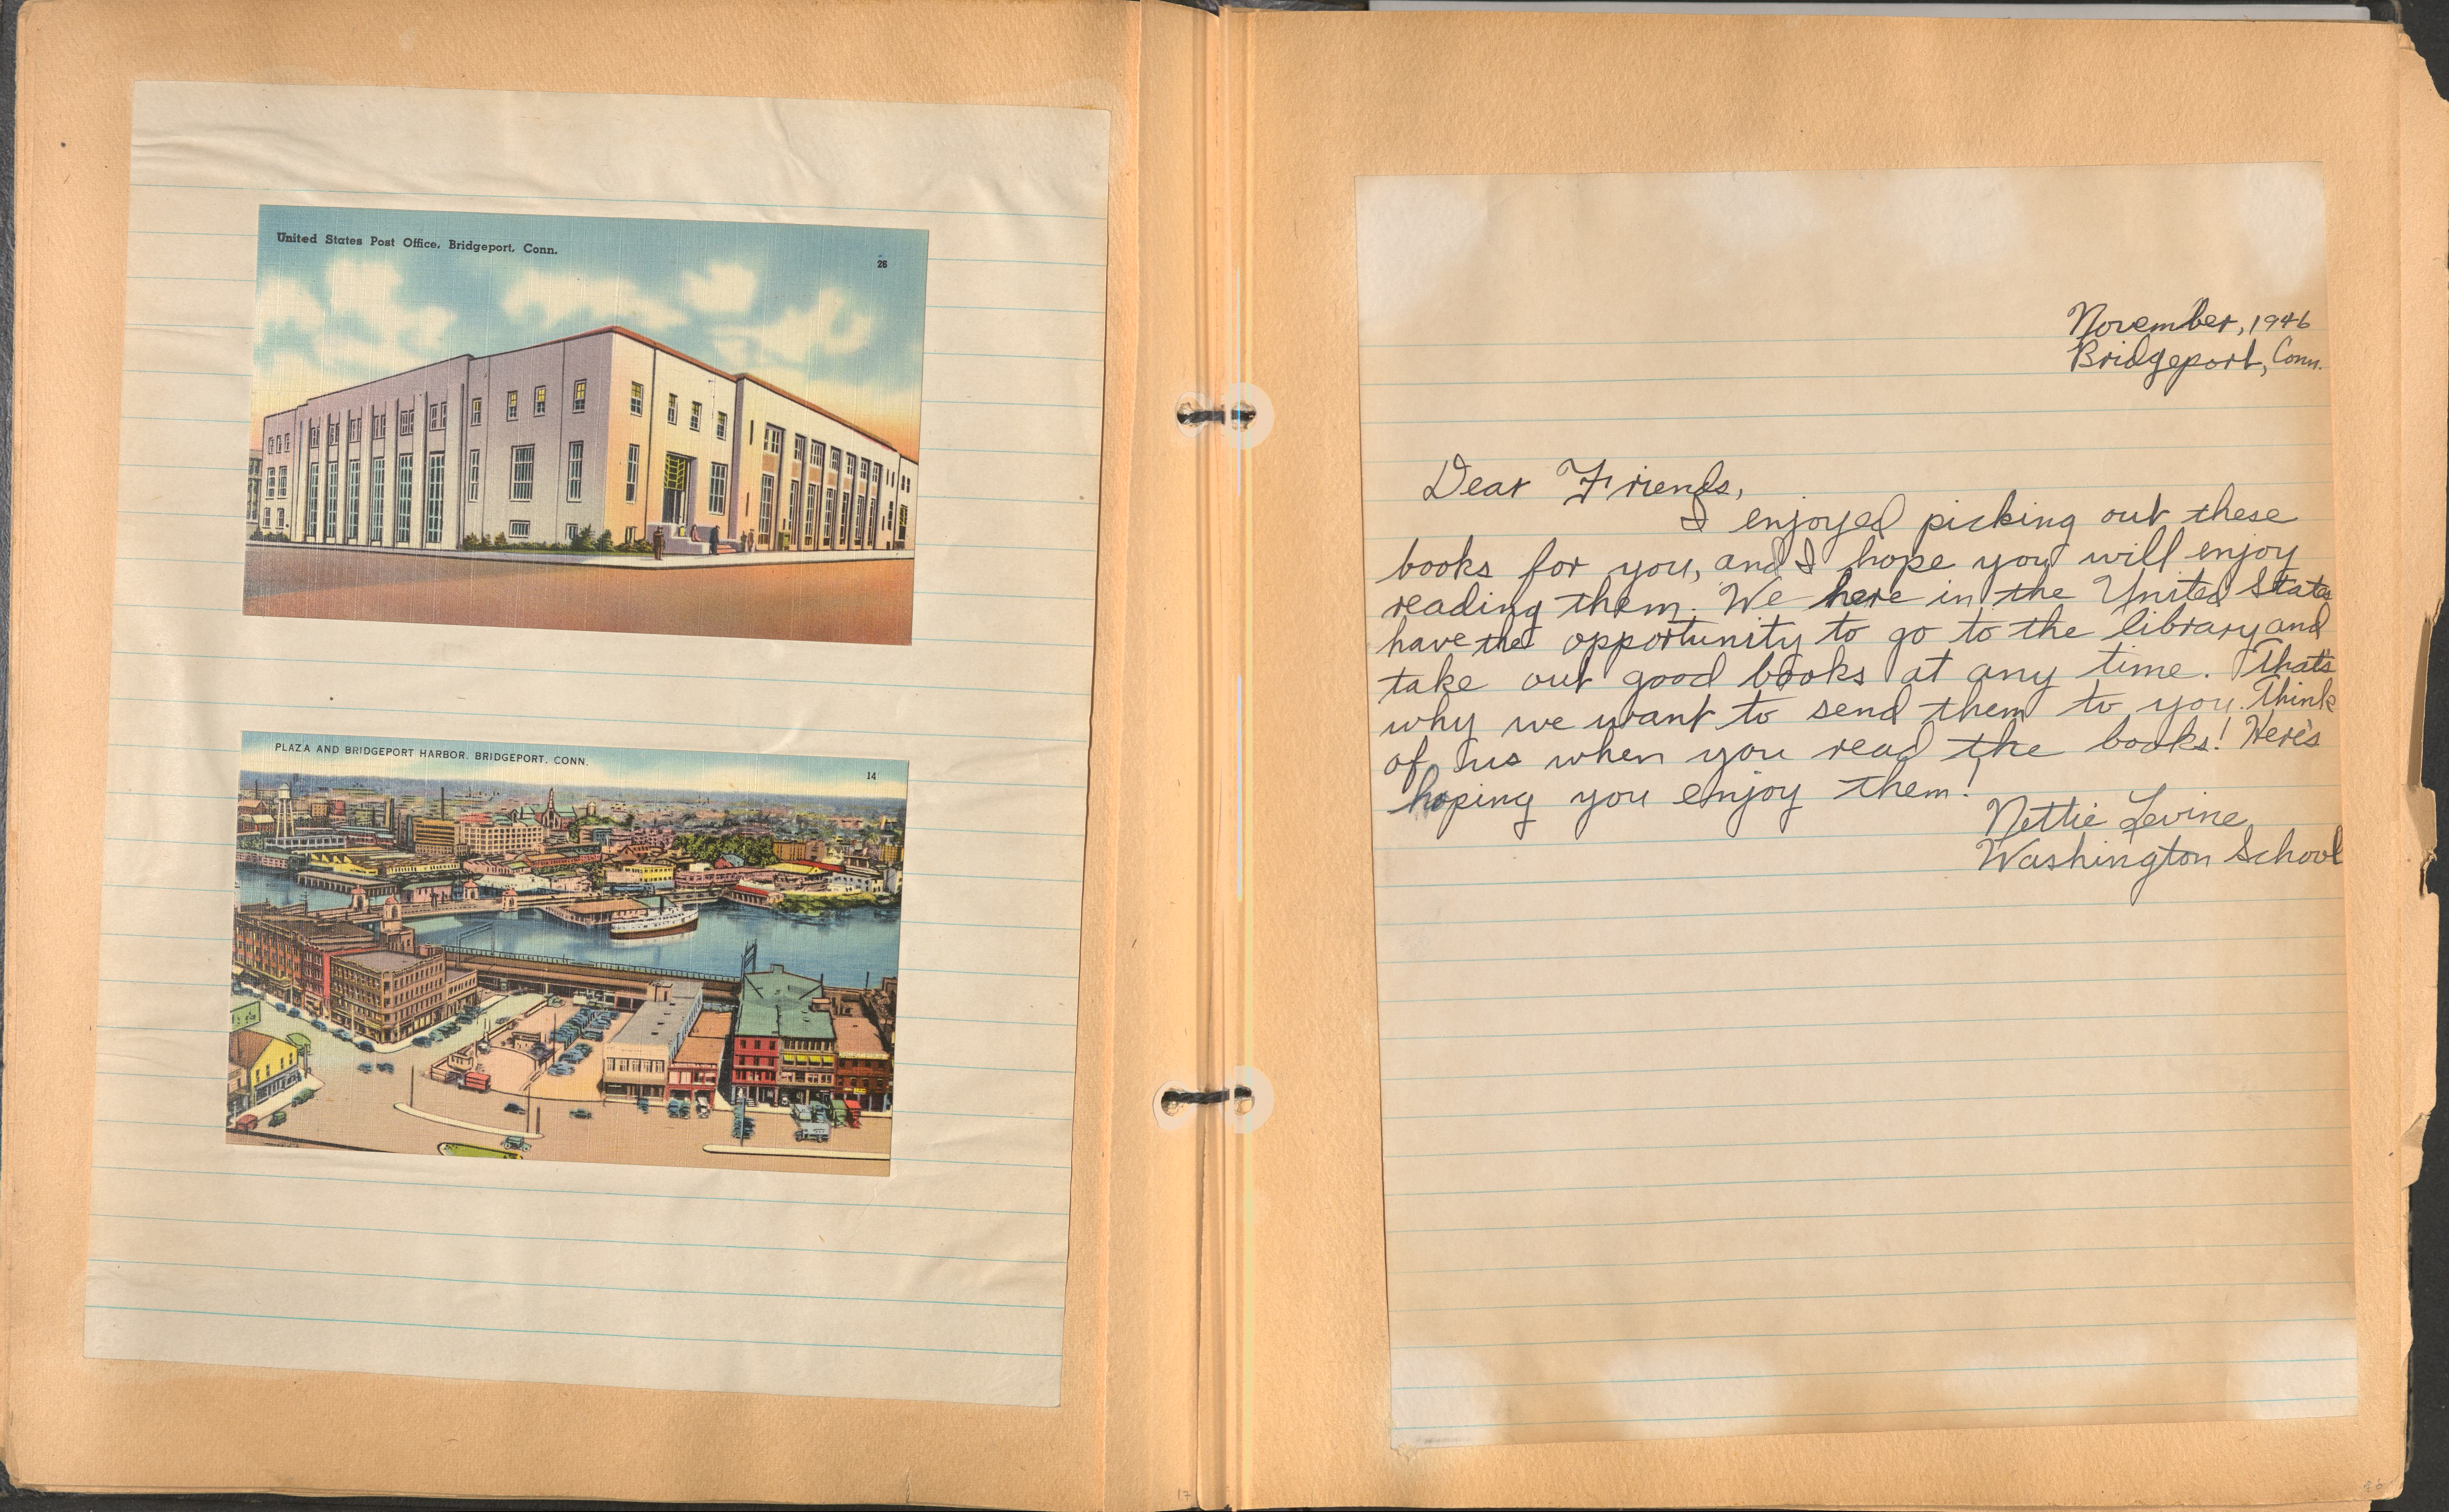 United States Post Office, Bridgeport, Conn.
26
PLAZA AND BRIDGEPORT HARBOR, BRIDGEPORT, CONN.
14
17
November, 1946
Bridgeport, Conn.
Dear Friends,
I enjoyed picking out these
books for you, and I hope you will enjoy
reading them. We here in the United States
have the opportunity to go to the library and
take out good books at any time. That's
why we want to send them to you. Think
of us when you read the books! Here's
hoping you enjoy them!
Nettie Levine
Washington School